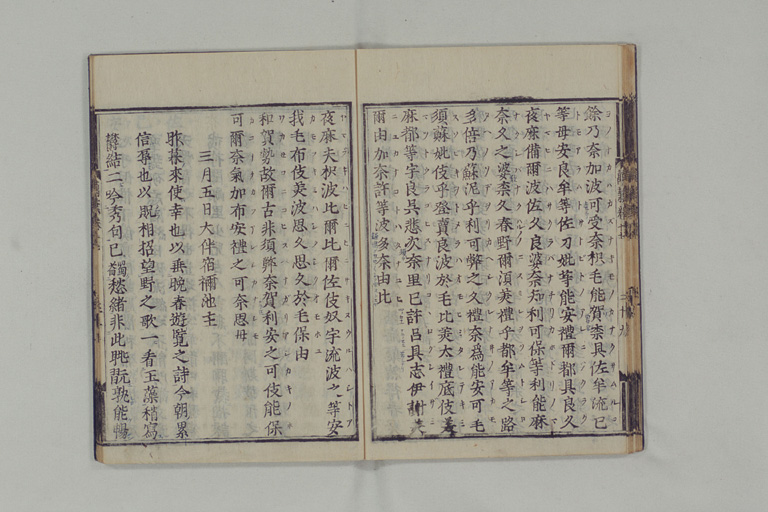 餘乃奈加波可受奈枳毛能賀奈具佐牟流己
等母安良牟等佐刀妣等能安禮爾都具良久
夜麻備爾波佐久良婆奈知利可保等利能麻
奈久之婆奈久春野爾須美禮乎都牟等之路
多倍乃蘇泥乎利可弊之久禮奈為能安可毛
須蘇妣伎乎登賣良波於毛比美太禮底伎美
麻都等宇良具悲須奈里己許呂具志伊謝美
爾由加奈許等波多奈由比
夜麻夫枳波比爾比爾佐伎奴宇流波之等安
我毛布伎美波思久思久於毛保由
和賀勢故爾古非須弊奈賀利安之可伎能保
可爾奈氣加布安禮之可奈思母
三月五日大伴宿禰池主
昨暮來使幸也以垂晚春遊覽之詩今朝累
信辱也以貺相招望野之歌一看玉藻稍寫
欝結二吟秀句已蠲愁緒非此眺翫孰能暢